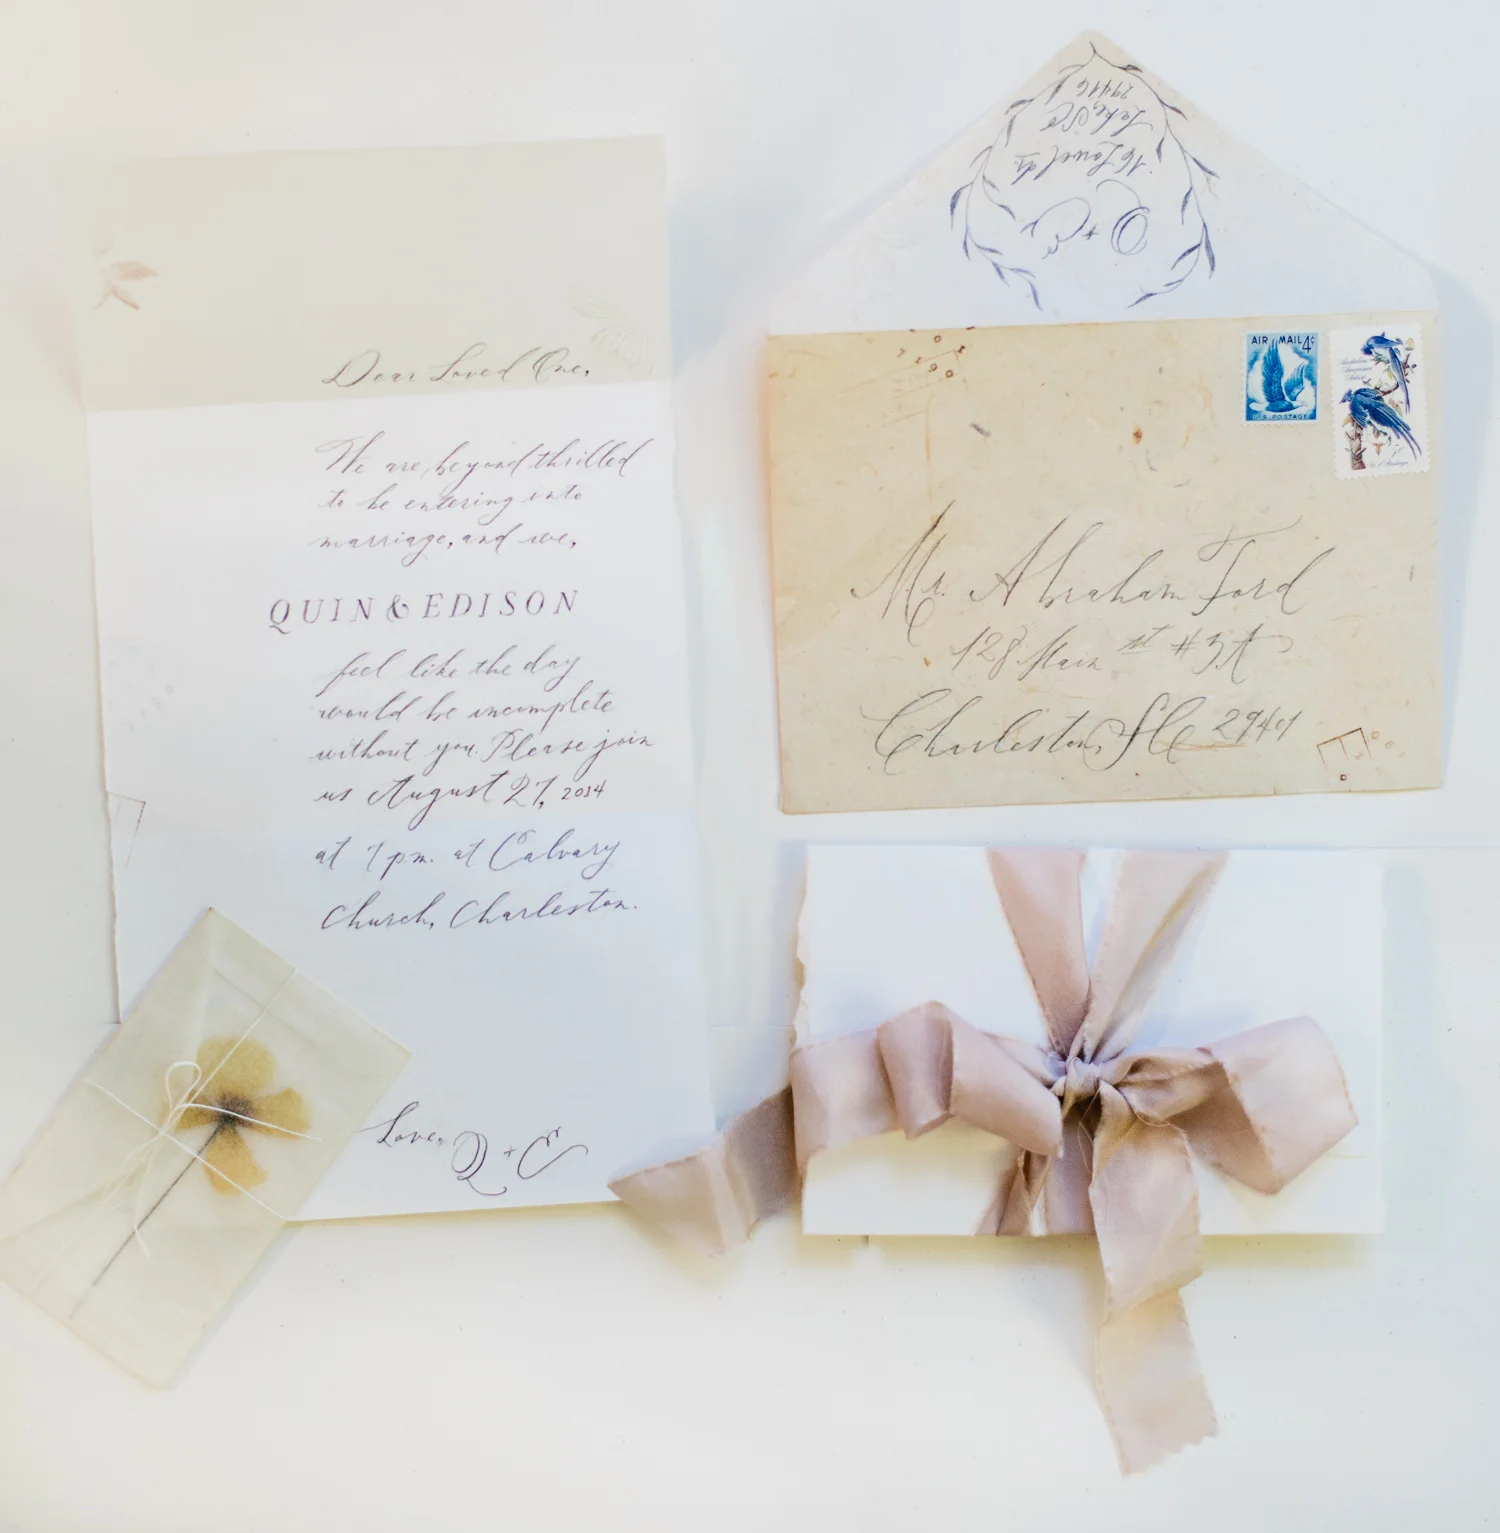 Dear Loved One,
We are beyond thrilled
to be entering into
marriage, and we,
QUIN & EDISON
feel like the day
would be incomplete
without you. Please join
us August 27, 2014
at 7 p.m. at Calvary
Church, Charleston.
Love, Q + E
Q + E
16 Laurel dr.
Lake, SC
29416
AIR MAIL 4¢
U.S. POSTAGE
Mr. Abraham Ford
128 Main st #3A
Charleston, SC 29401